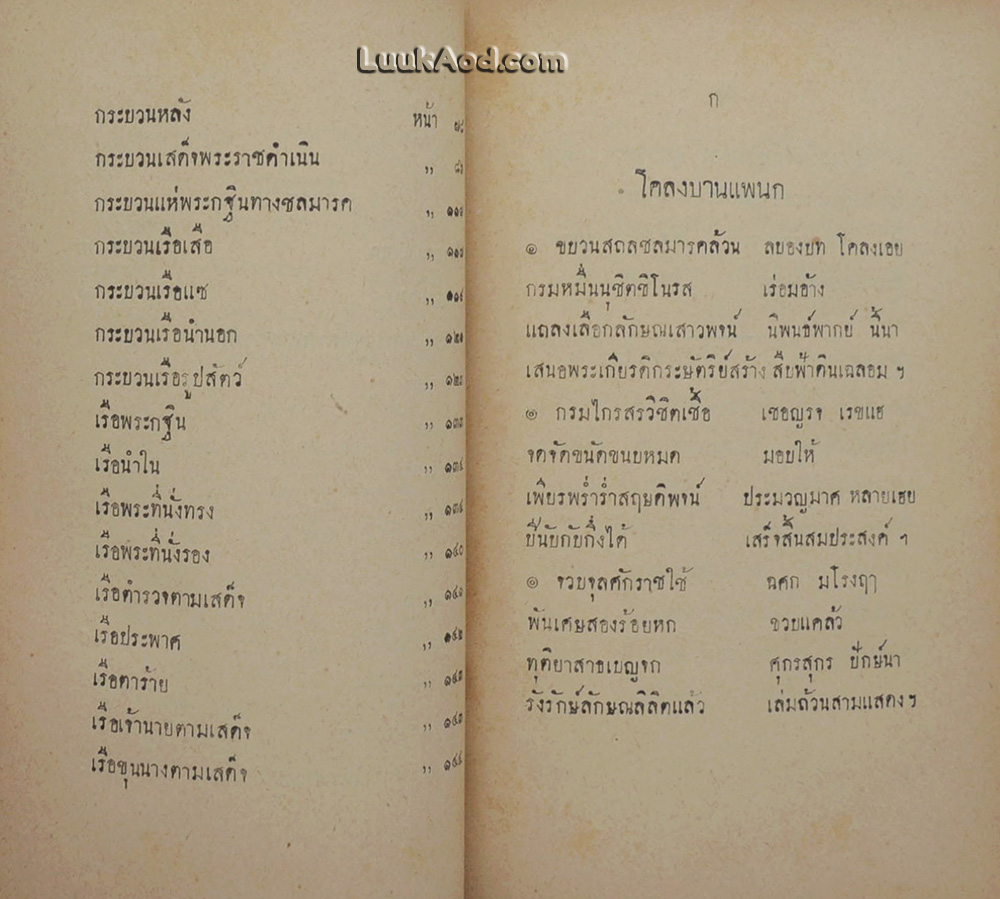 LuukAod.com
กระบวนหลัง หน้า ๗๔
กระบวนเสด็จพระราชดำเนิน ,,
กระบวนแห่พระกฐินทางชลมารค ,,
กระบวนเรือเสือ ,,
กระบวนเรือแซ ,,
กระบวนเรือนำนอก ,,
กระบวนเรือรูปสัตว์ ,,
เรือพระกฐิน ,, ๑๓๓
เรือนำใน ,, ๑๓๔
เรือพระที่นั่งทรง ,,
เรือพระที่นั่งรอง ,, ๑๔๐
เรือตำรวจตามเสด็จ ,, ๑๔๑
เรือประพาศ ,, ๑๔๒
เรือดาร้าย ,, ๑๔๓
เรือเจ้านายตามเสด็จ ,, ๑๔๓
เรือขุนนางตามเสด็จ ,, ๑๔๔
ก
โคลงบานแพนก
๏ ขบวนสถลชลมารคล้วน ลบองบท โคลงเอย
กรมหมื่นนุชิตชิโนรส เร่อมอ้าง
แถลงเลือกลักษณเสาวพจน์ นิพนธ์พากย์ นี้นา
เสนอพระเกียรติกระษัตริย์สร้าง สืบฟ้าดินเฉลอม ฯ
๏ กรมไกรสรวิชิตเชื้อ เชอญรจ เรขแฮ
จดจัดขนัดขนบหมด มอบให้
เพียรพร่ำร่ำสฤษดิพจน์ ประมวญมาศ หลายเฮย
ปีนับกับกึ่งได้ เสร็จสิ้นสมประสงค์ ฯ
๏ จวบจุลศักราชใช้ ฉศก มโรงฤๅ
พันเศษสองร้อยหก ขวบแคล้ว
ทุติยาสาธเบญจก ศุกรสุกร ปักษ์นา
รังรักษ์ลักษณลิลิตแล้ว เล่มถ้วนสามแสดง ฯ